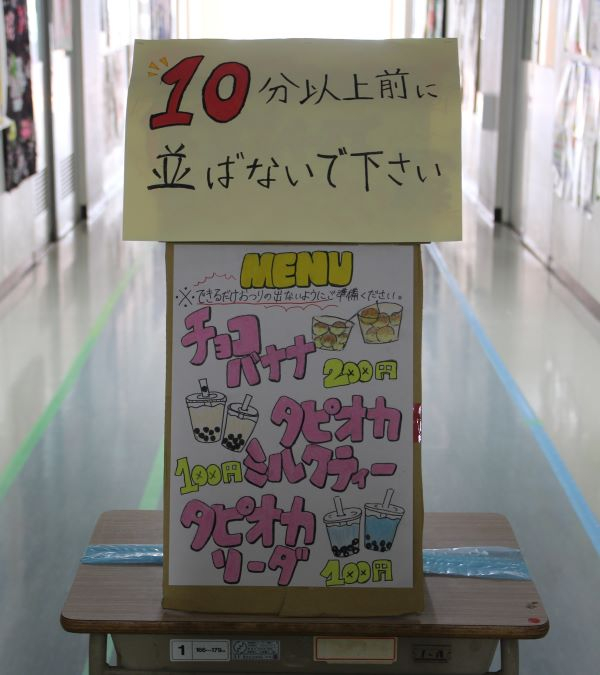 10分以上前に
並ばないで下さい
MENU
※できるだけおつりの出ないようにご準備ください。
チョコ
バナナ
200円
タピオカ
ミルクティー
100円
タピオカ
ソーダ
100円
1